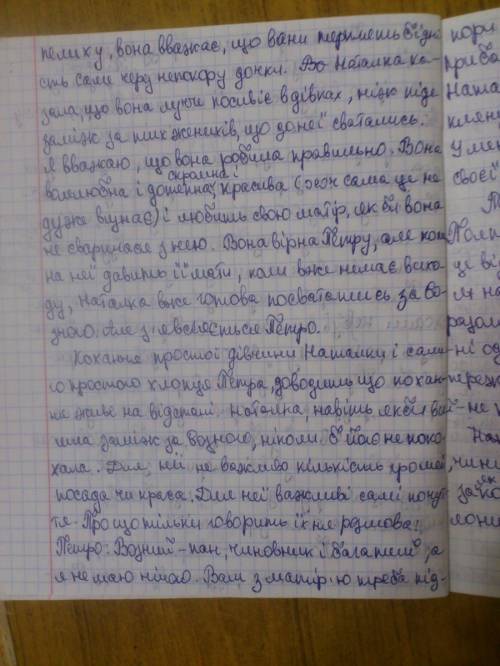 пелиху, вона вважає, що вони терплять бідні-
сть саме через непокору дочки. Бо Наталка ка-
зала, що вона лучче посивіє в дівках, ніж піде
заміж за тих жеників, що до неї сватались.
Я вважаю, що вона робила правильно. Вона
скромна і
волелюбна і дотепна, красива (хоч сама це не
дуже визнає) і любить свою матір, як би вона
не сварилася з нею. Вона вірна Петру, але коли
на неї давить її мати, коли вже немає вихо-
ду, Наталка вже готова посвататись за Во-
зного. Але з'являється Петро.
Кохання простої дівчини Наталки і само-
го простого хлопця Петра, доводить що кохан-
ня живе на відстані. Наталка, навіть якби вий-
шла заміж за возного, ніколи б його не поко-
хала. Для неї не важливо кількість грошей
посада чи краса. Для неї важливі самі почут-
тя. Про що тільки говорить їхня розмова!
Петро: Возний - пан, чиновник і багатий, а
я не маю нічого. Вам з матір'ю треба під-